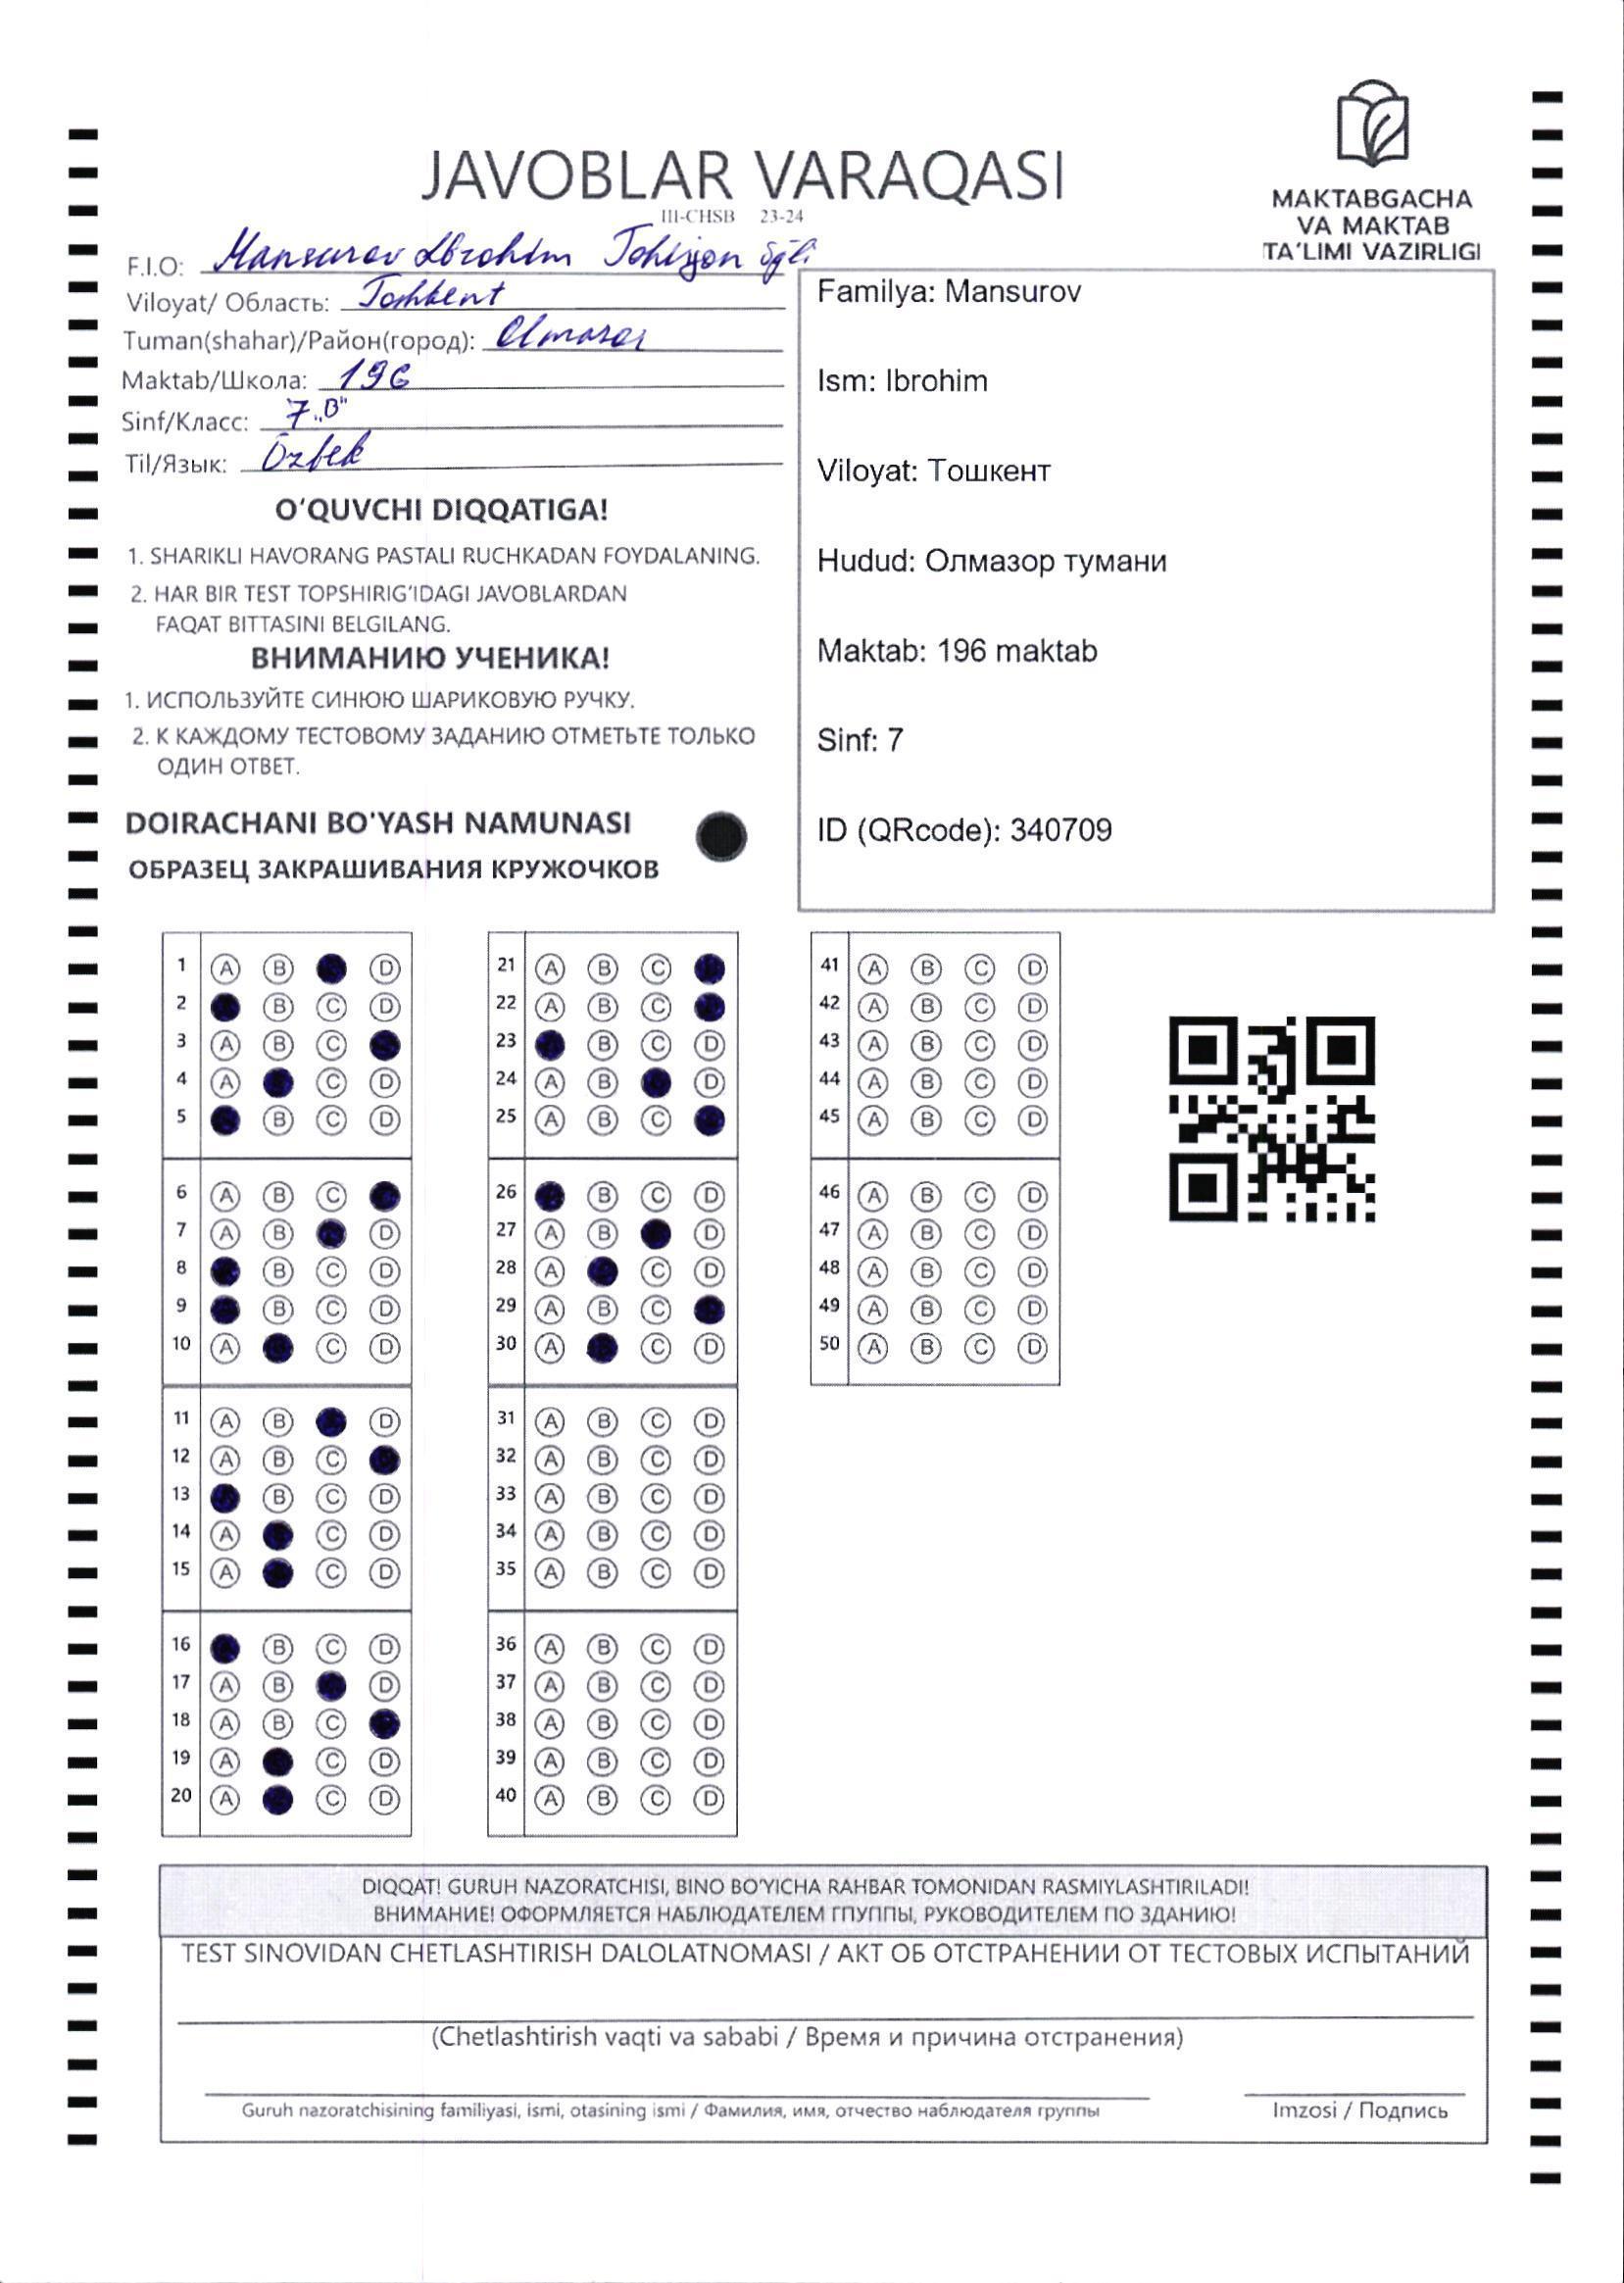 JAVOBLAR VARAQASI
III-CHSB 23-24
MAKTABGACHA
VA MAKTAB
TA'LIMI VAZIRLIGI
F.I.O: Mansurov Ibrohim Tohirjon o'g'li
Viloyat/ Область: Toshkent
Tuman(shahar)/Район(город): Olmazor
Maktab/Школа: 196
Sinf/Класс: 7 „B"
Til/Язык: Özbek
O'QUVCHI DIQQATIGA!
1. SHARIKLI HAVORANG PASTALI RUCHKADAN FOYDALANING.
2. HAR BIR TEST TOPSHIRIG'IDAGI JAVOBLARDAN
FAQAT BITTASINI BELGILANG.
ВНИМАНИЮ УЧЕНИКА!
1. ИСПОЛЬЗУЙТЕ СИНЮЮ ШАРИКОВУЮ РУЧКУ.
2. К КАЖДОМУ ТЕСТОВОМУ ЗАДАНИЮ ОТМЕТЬТЕ ТОЛЬКО
ОДИН ОТВЕТ.
DOIRACHANI BO'YASH NAMUNASI
ОБРАЗЕЦ ЗАКРАШИВАНИЯ КРУЖОЧКОВ
Familya: Mansurov
Ism: Ibrohim
Viloyat: Тошкент
Hudud: Олмазор тумани
Maktab: 196 maktab
Sinf: 7
ID (QRcode): 340709
1 A B D
2 B C D
3 A B C
4 A C D
5 B C D
6 A B C
7 A B D
8 B C D
9 B C D
10 A C D
11 A B D
12 A B C
13 B C D
14 A C D
15 A C D
16 B C D
17 A B D
18 A B C
19 A C D
20 A C D
21 A B C
22 A B C
23 B C D
24 A B D
25 A B C
26 B C D
27 A B D
28 A C D
29 A B C
30 A C D
31 A B C D
32 A B C D
33 A B C D
34 A B C D
35 A B C D
36 A B C D
37 A B C D
38 A B C D
39 A B C D
40 A B C D
41 A B C D
42 A B C D
43 A B C D
44 A B C D
45 A B C D
46 A B C D
47 A B C D
48 A B C D
49 A B C D
50 A B C D
DIQQAT! GURUH NAZORATCHISI, BINO BO'YICHA RAHBAR TOMONIDAN RASMIYLASHTIRILADI!
ВНИМАНИЕ! ОФОРМЛЯЕТСЯ НАБЛЮДАТЕЛЕМ ГПУППЫ, РУКОВОДИТЕЛЕМ ПО ЗДАНИЮ!
TEST SINOVIDAN CHETLASHTIRISH DALOLATNOMASI / АКТ ОБ ОТСТРАНЕНИИ ОТ ТЕСТОВЫХ ИСПЫТАНИЙ
(Chetlashtirish vaqti va sababi / Время и причина отстранения)
Guruh nazoratchisining familiyasi, ismi, otasining ismi / Фамилия, имя, отчество наблюдателя группы
Imzosi / Подпись